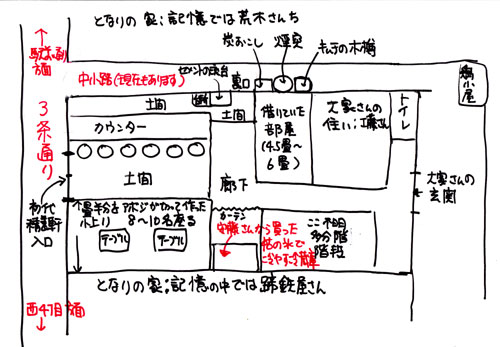 となりの家:記憶では荒木さんち
炭おこし
煙突
キムチの木樽
裏口
中小路(現在もあります)
セメントの流し台
鶏小屋
駅裏
方面
3条通り
初代
精養軒
入口
西4丁目方面
土間
土間
カウンター
土間
借りていた
部屋
(4.5畳〜
6畳)
大家さんの
住い:工藤さん
トイレ
大家さんの
玄関
廊下
カーテン
畳半分をアボジがやって作った
小上り 8〜10名座る
テーブル
テーブル
安藤さんから買った
塩の氷で
冷やす冷蔵庫
ここ不明
多分階
階段
となりの家:記憶の中では蹄鉄屋さん